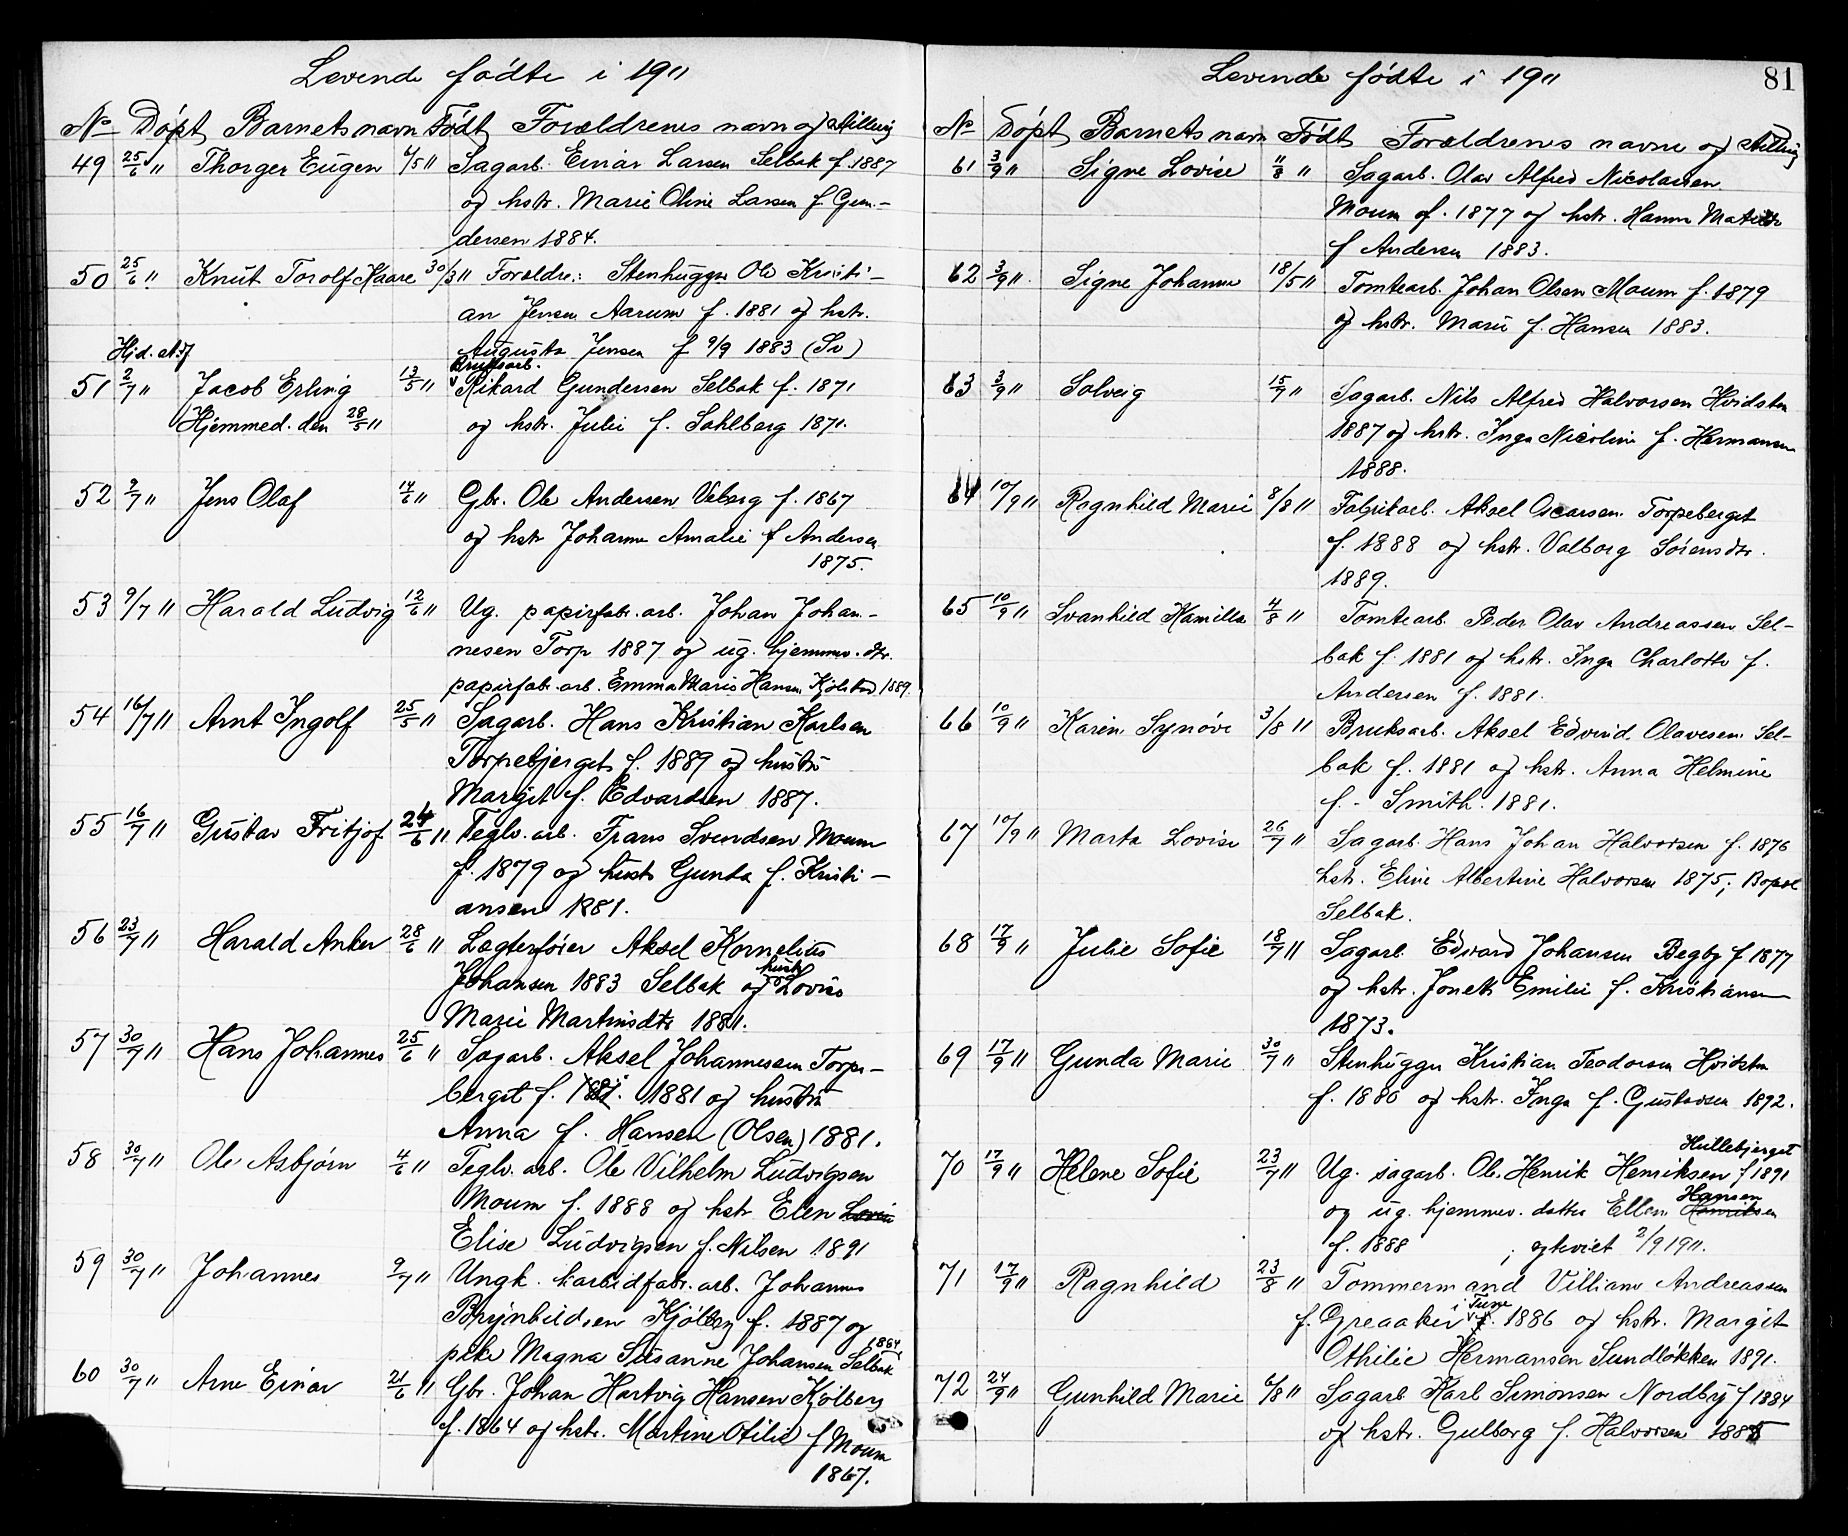 Levende födte i 19"
No Döpt Barnets navn Födt Forældrenes navn og stilling
49 25/6 " Thorger Eugen 4/5 " Sagarb. Einar Larsen Selbak f. 1887
og hstr. Marie Oline Larsen f. Gun-
dersen 1884.
50 25/6 " Knut Torolf Kaare 30/3 " Forældre: Stenhugger Ole Kristi-
an Jensen Aarum f. 1881 og hstr.
Augusta Jensen f 9/9 1883 (Sv)
Hjd. st.
Bruksarb.
51 2/7 " Jacob Erling 13/5 " Rikard Gundersen Selbak f. 1871
Hjemmed. den 28/5 " og hstr. Julie f. Sahlberg 1871.
52 2/7 " Jens Olaf 14/6 " Gbr. Ole Andersen Veberg f. 1867
og hstr Johanne Amalie f Andersen
1875.
53 9/7 " Harald Ludvig 12/6 " Ug. papirfabr. arb. Johan Johan-
nesen Torp 1887 og ug. hjemmev. dtr.
papirfabr. arb. Emma Marie Hansen 1889.
54 16/7 " Arnt Ingolf 25/5 " Sagarb. Hans Kristian Karlsen
Torpebjerget f. 1889 og hustru
Margit f. Edvardsen 1887.
55 16/7 " Gustav Fritjof 24/6 " Teglv. arb. Frans Svendsen Moum
f. 1879 og hustr Gunda f. Kristi-
ansen 1881.
56 23/7 " Harald Anker 28/6 " Lægterfører Aksel Kornelius
Johansen 1883 Selbak og hustr Lovise
Marie Martinsdtr 1881.
57 30/7 " Hans Johannes 25/6 " Sagarb. Aksel Johannessen Torpe-
berget f. 1881 og hustru
Anna f. Hansen (Olsen) 1881.
58 30/7 " Ole Asbjörn 4/6 " Teglv. arb. Ole Vilhelm Ludvigsen
Moum f. 1888 og hstr Elen
Elise Ludvigsen f. Nilsen 1891
59 30/7 " Johannes 9/7 " Ungk. karbidfabr. arb. Johannes
Brynhildsen Kjölberg f. 1887 og
pike Magna Susanne Johansen Selbak 1864
60 30/7 " Arne Einar 21/6 " Gbr. Johan Hartvig Hansen Kjölberg
f. 1864 og hstr. Martine Otilie f Moum
1867.
81
Levende födte i 19"
No Döpt Barnets navn Födt Forældrenes navne og stilling
61 3/9 " Signe Lovise 11/8 " Sagarb. Olav Alfred Nicolaisen
Moum f. 1877 og hstr. Hanna Matilde
f Andersen 1883.
62 3/9 " Signe Johanne 18/5 " Tomtearb. Johan Olsen Moum f. 1879
og hstr. Marie f. Hansen 1883.
63 3/9 " Solveig 15/7 " Sagarb. Nils Alfred Halvorsen Hvidsten
1887 og hstr. Inga Nicoline f. Hermansen
1888.
64 10/9 " Ragnhild Marie 8/8 " Fabrikarb. Aksel Oscarsen Torpeberget
f. 1888 og hstr. Valborg Sörensdtr.
1889.
65 10/9 " Svanhild Kamilla 4/8 " Tomtearb. Peder Olav Andreassen Sel-
bak f. 1881 og hstr. Inga Charlotte f.
Andersen f. 1881.
66 10/9 " Karin Synöve 3/8 " Bruksarb. Aksel Edvind Olavesen Sel-
bak f. 1881 og hstr. Anna Helmine
f. - Smith. 1881.
67 10/9 " Marta Lovise 26/7 " Sagarb. Hans Johan Halvorsen f. 1876
hstr. Eline Albertine Halvorsen 1875; Bopæl
Selbak.
68 17/9 " Julie Sofie 18/7 " Sagarb. Edvard Johansen Begby f 1877
og hstr. Jonette Emilie f. Kristiansen
1873.
69 17/9 " Gunda Marie 30/7 " Stenhugger Kristian Teodorsen Hvidsten
f. 1880 og hstr. Inga f. Gustavsen 1892.
Hullebjerget
70 17/9 " Helene Sofie 23/7 " Ug. sagarb. Ole Henrik Henriksen f 1891
og ug. hjemmev. datter Ellen Hansen Henriksen
f. 1888 ; egteviet 2/9 19".
71 17/9 " Ragnhild 23/8 " Tömmermand Villiam Andreassen
f. Greaaker i Tune f. 1886 og hstr. Margit
Othilie Hermansen Sundlökken 1891.
72 24/9 " Gunhild Marie 6/8 " Sagarb Karl Simonsen Nordby f 1884
og hstr. Gulborg f. Halvorsen 1885